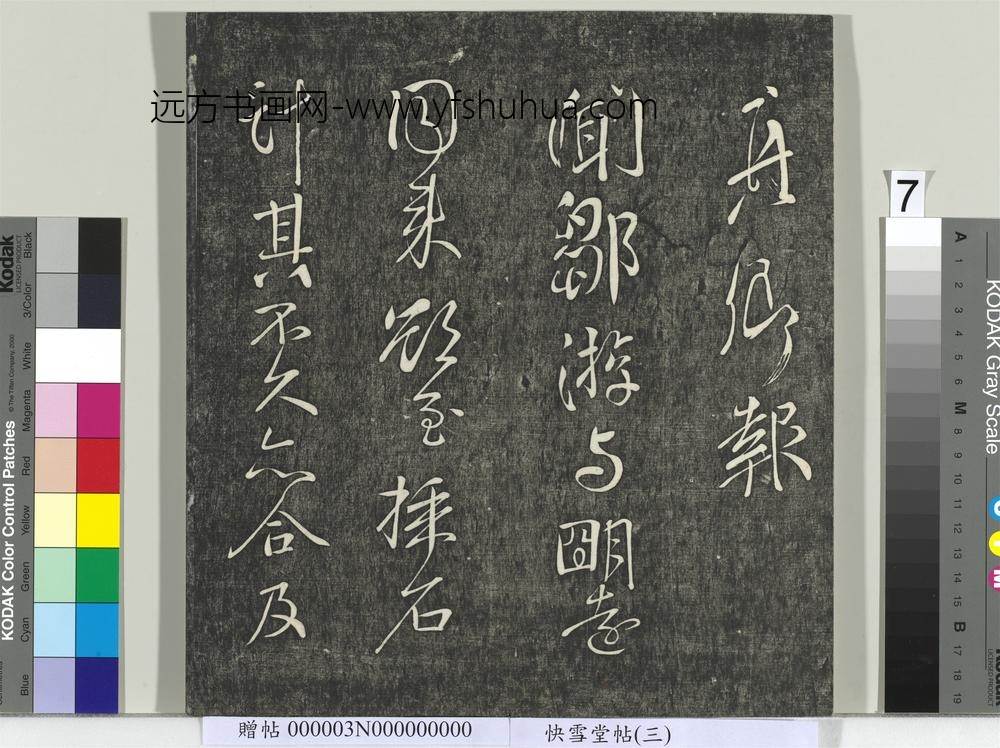 真卿報
聞鄒游与朙遠
同来欲至採石
計其不久亦合及
远方书画网-www.yfshuhua.com
7
KODAK Color Control Patches
Kodak
LICENSED PRODUCT
© The Tiffen Company, 2000
Blue
Cyan
Green
Yellow
Red
Magenta
White
3/Color
Black
KODAK Gray Scale
A 1 2 3 4 5 6 M 8 9 10 11 12 13 14 15 B 17 18 19
贈帖 000003N000000000
快雪堂帖(三)